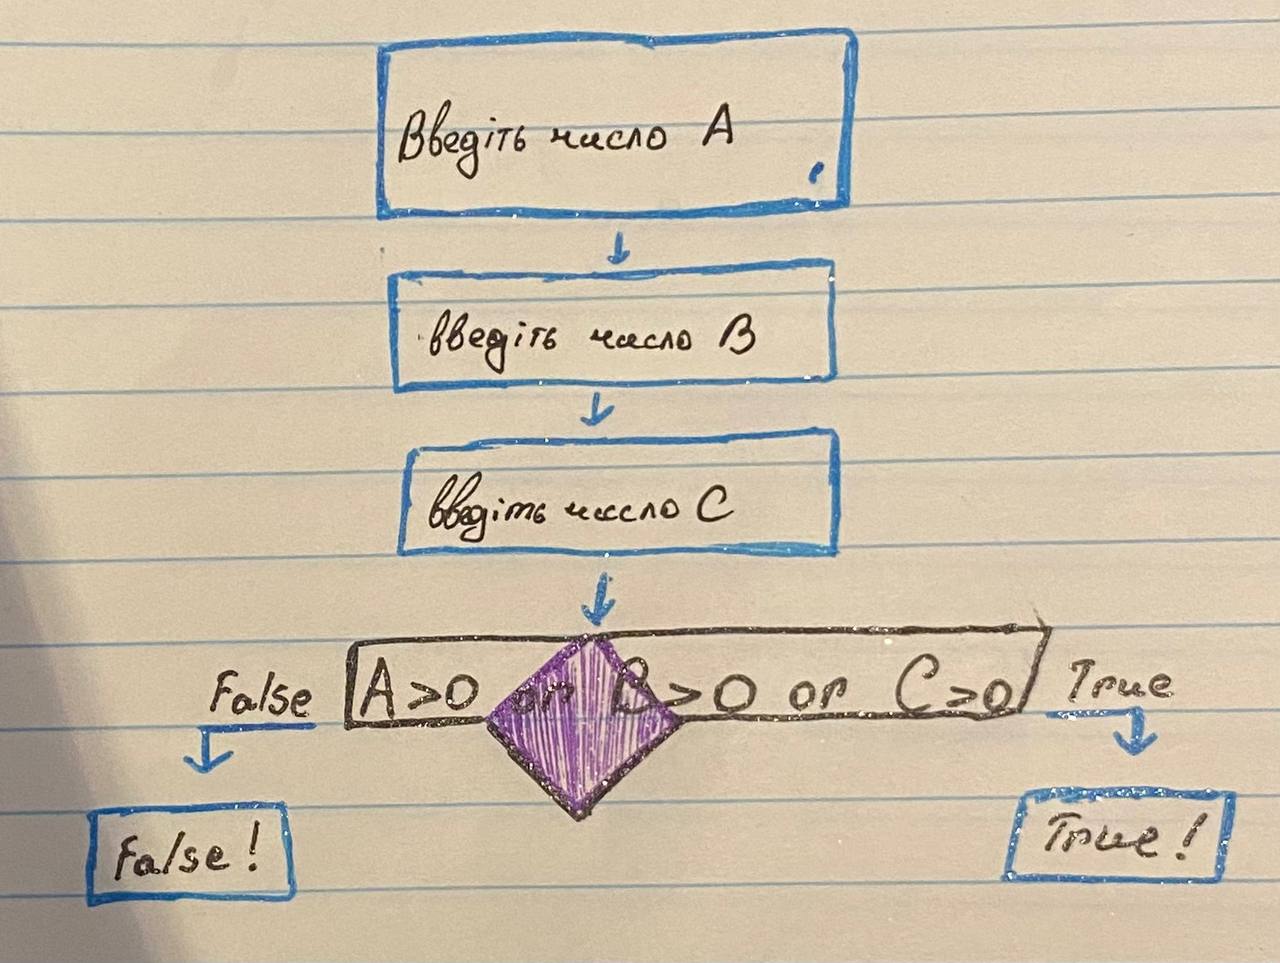 Введіть число А
введіть число В
введіть число С
False
A>0 or B>0 or C>0
True
False!
True!